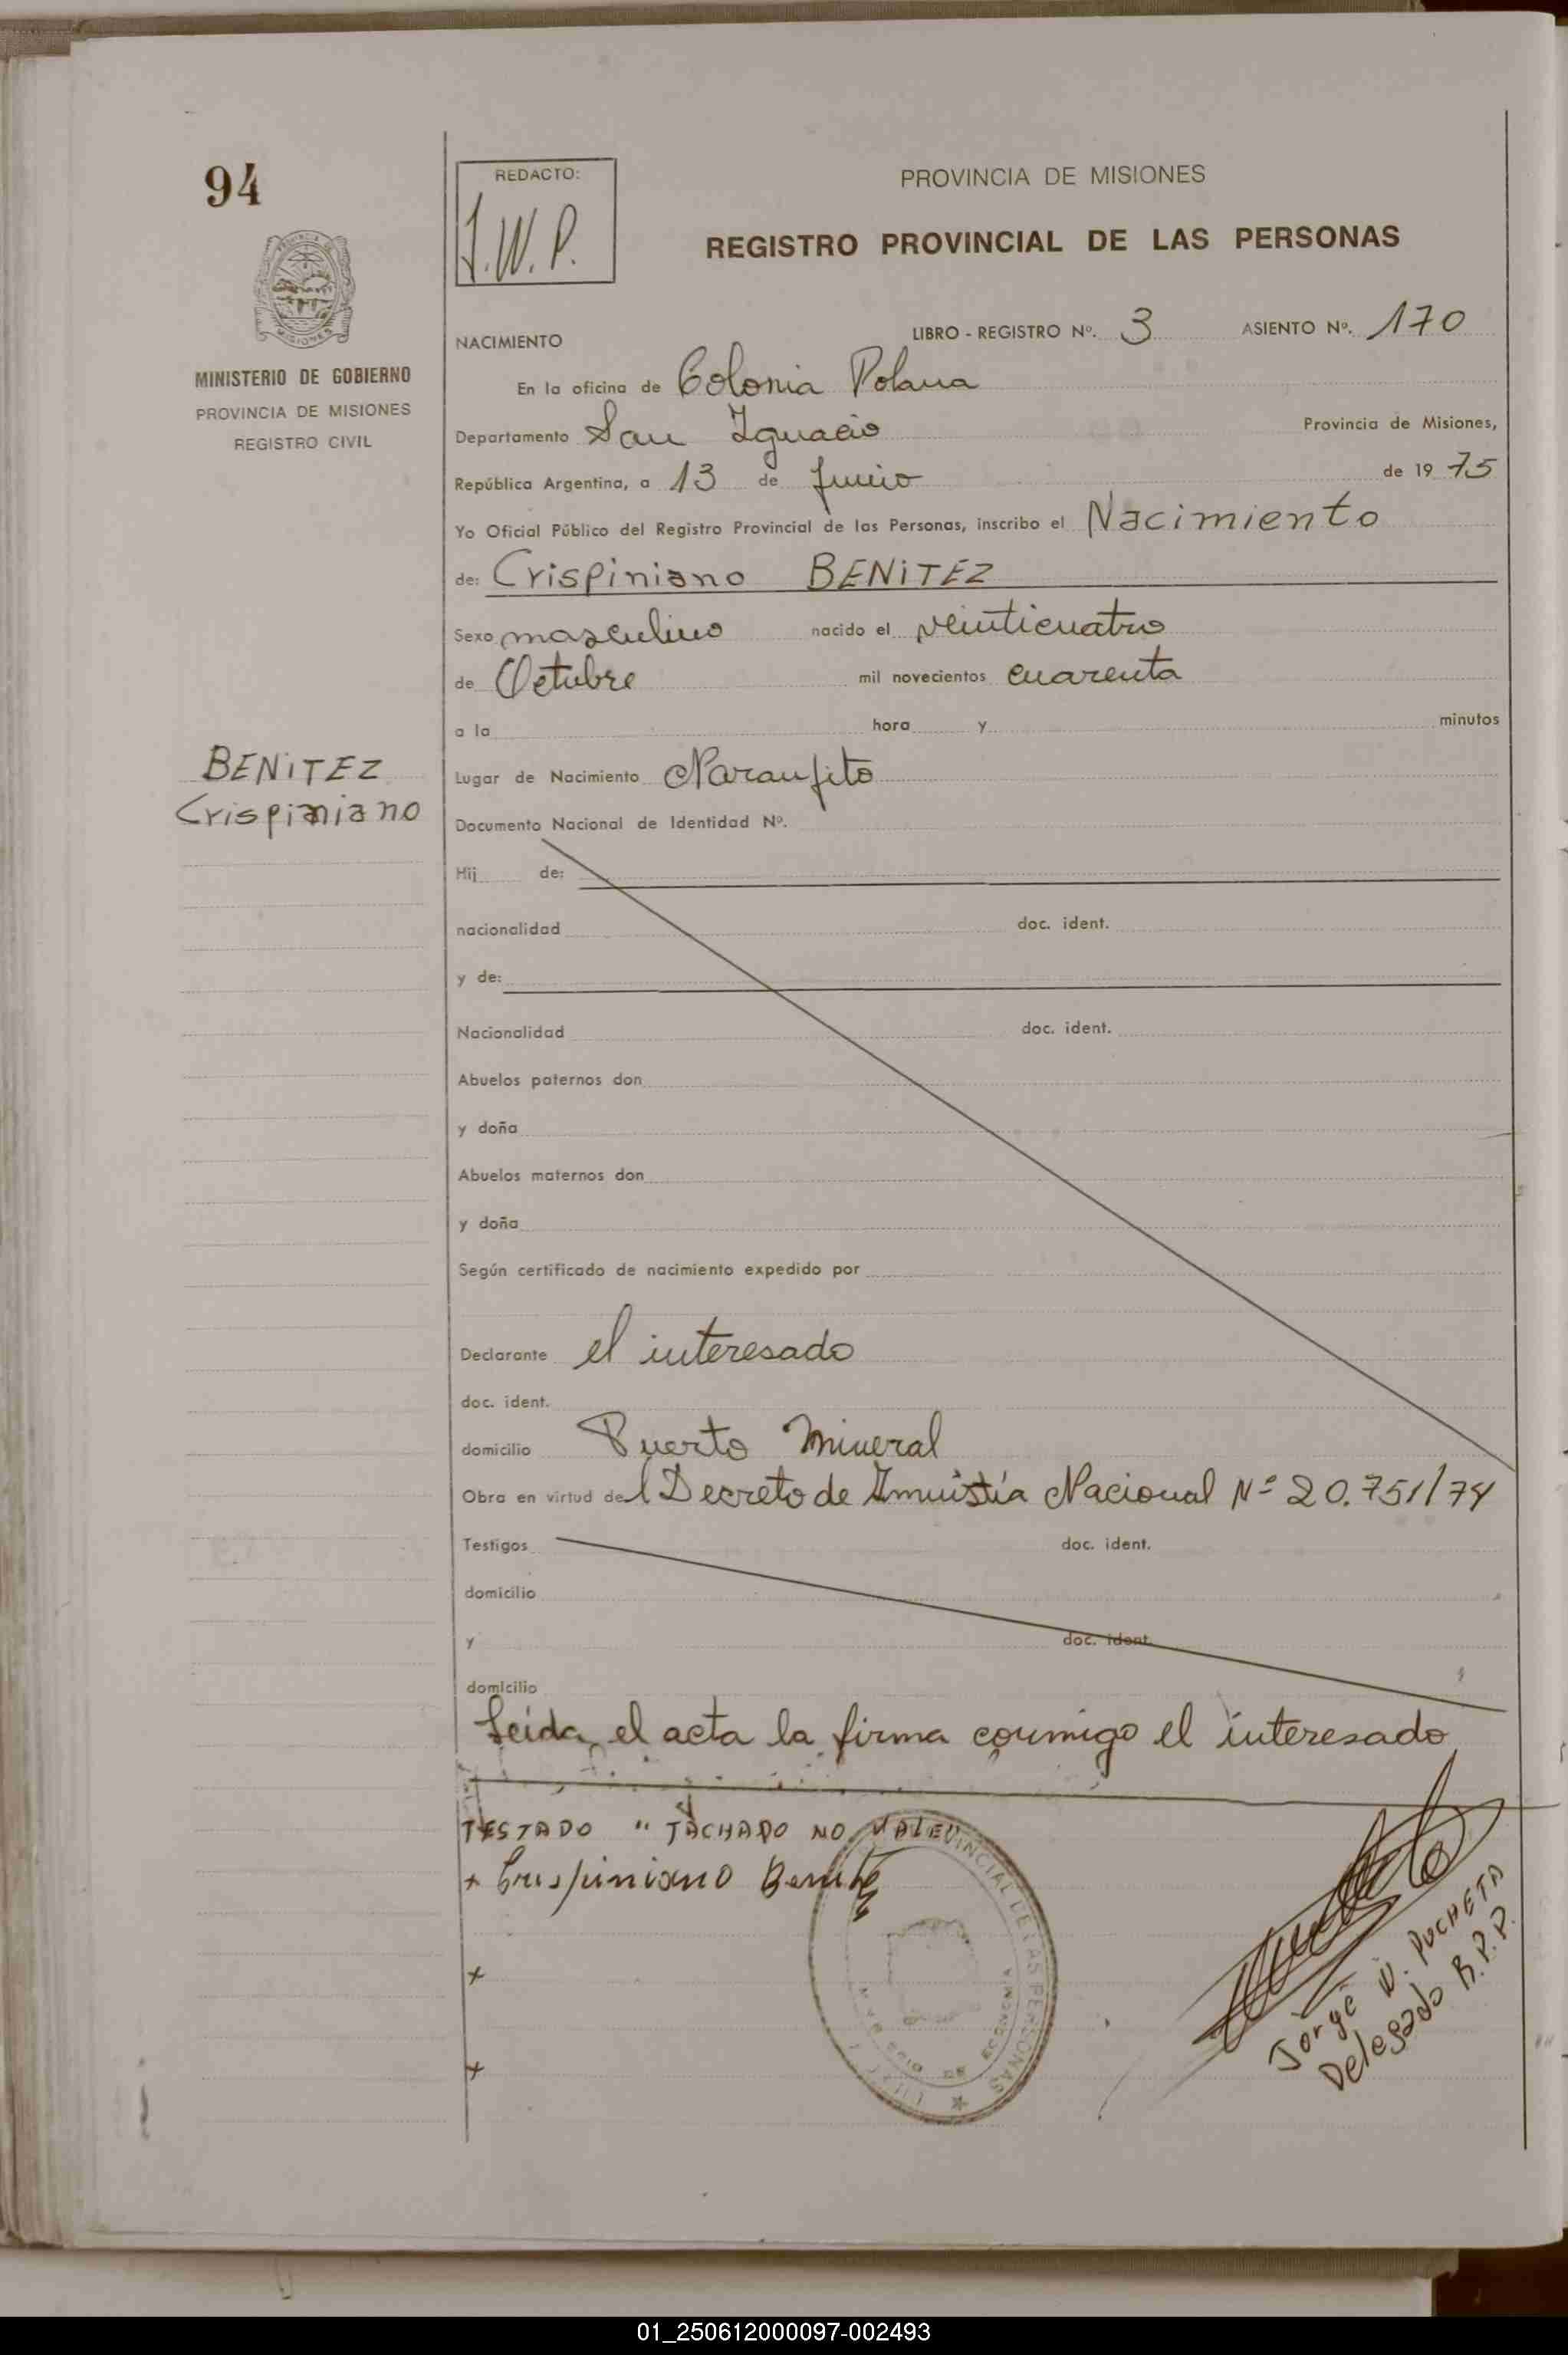 94
REDACTO:
J.W.P.
PROVINCIA DE MISIONES
REGISTRO PROVINCIAL DE LAS PERSONAS
MINISTERIO DE GOBIERNO
PROVINCIA DE MISIONES
REGISTRO CIVIL
NACIMIENTO
LIBRO - REGISTRO Nº. 3 ASIENTO Nº. 170
En la oficina de Colonia Polana
Departamento San Ignacio Provincia de Misiones,
República Argentina, a 13 de Junio de 19 75
Yo Oficial Público del Registro Provincial de las Personas, inscribo el Nacimiento
de: Crispiniano BENITEZ
Sexo masculino nacido el veinticuatro
de Octubre mil novecientos cuarenta
a la hora y minutos
BENITEZ
Crispiniano
Lugar de Nacimiento Naranjito
Documento Nacional de Identidad Nº.
Hij de:
nacionalidad doc. ident.
y de:
Nacionalidad doc. ident.
Abuelos paternos don
y doña
Abuelos maternos don
y doña
Según certificado de nacimiento expedido por
Declarante el interesado
doc. ident.
domicilio Puerto Mineral
Obra en virtud del Decreto de Amnistía Nacional Nº 20.751/74
Testigos doc. ident.
domicilio
y doc. ident.
domicilio
Leída el acta la firma conmigo el interesado
TESTADO " TACHADO NO VALE
+ Crispiniano Benitez
+
+
Jorge W. PUCHETA
Delegado R.P.P.
01_250612000097-002493